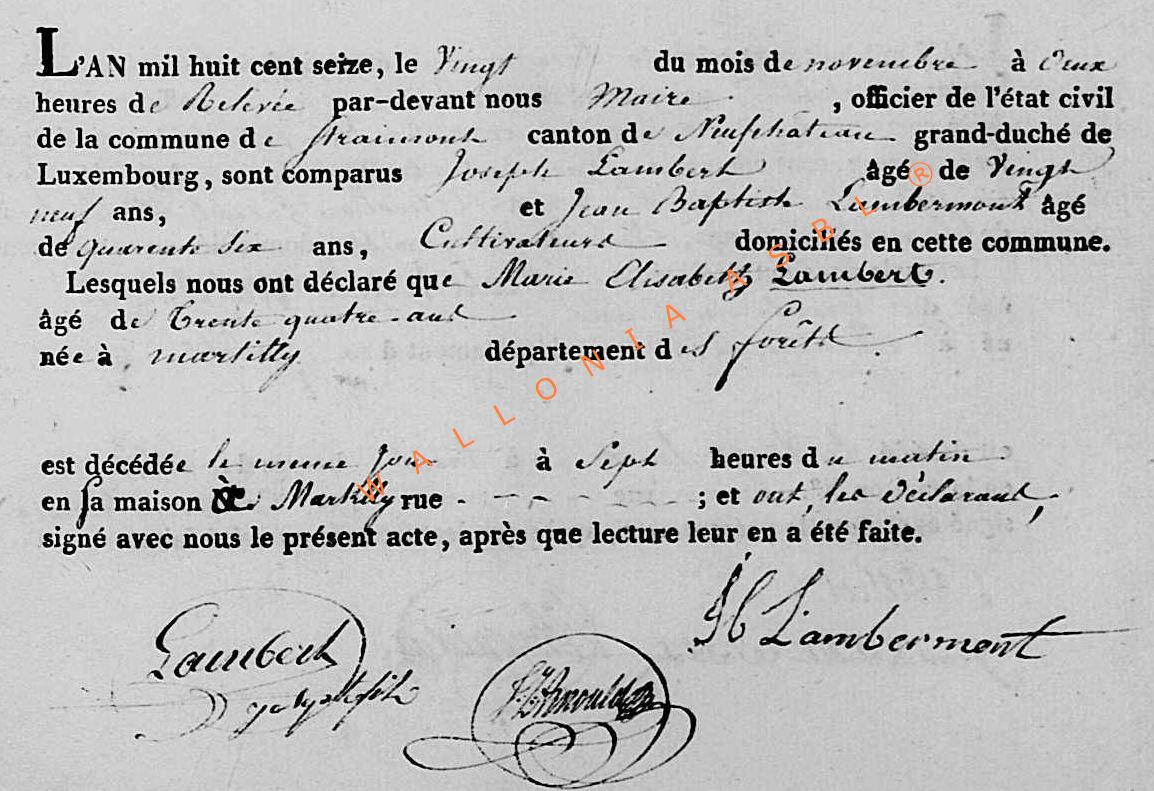 L'AN mil huit cent seize, le Vingt du mois de novembre à Deux
heures de Relevée par-devant nous Maire , officier de l'état civil
de la commune de Straimont canton de Neufchâteau grand-duché de
Luxembourg, sont comparus Joseph Lambert âgé de Vingt
neuf ans, et Jean Baptiste Lambermont âgé
de quarente six ans, Cultivateurs domiciliés en cette commune.
Lesquels nous ont déclaré que Marie Elisabeth Lambert.
âgé de Trente quatre ans
née à martilly département des forêts
est décédée le meme jour à Sept heures du matin
en sa maison de Martilly rue - - - - - ; et ont, les déclarants,
signé avec nous le présent acte, après que lecture leur en a été faite.
Lambert
JB Lambermont
joseph
WALLONIA ASBL®